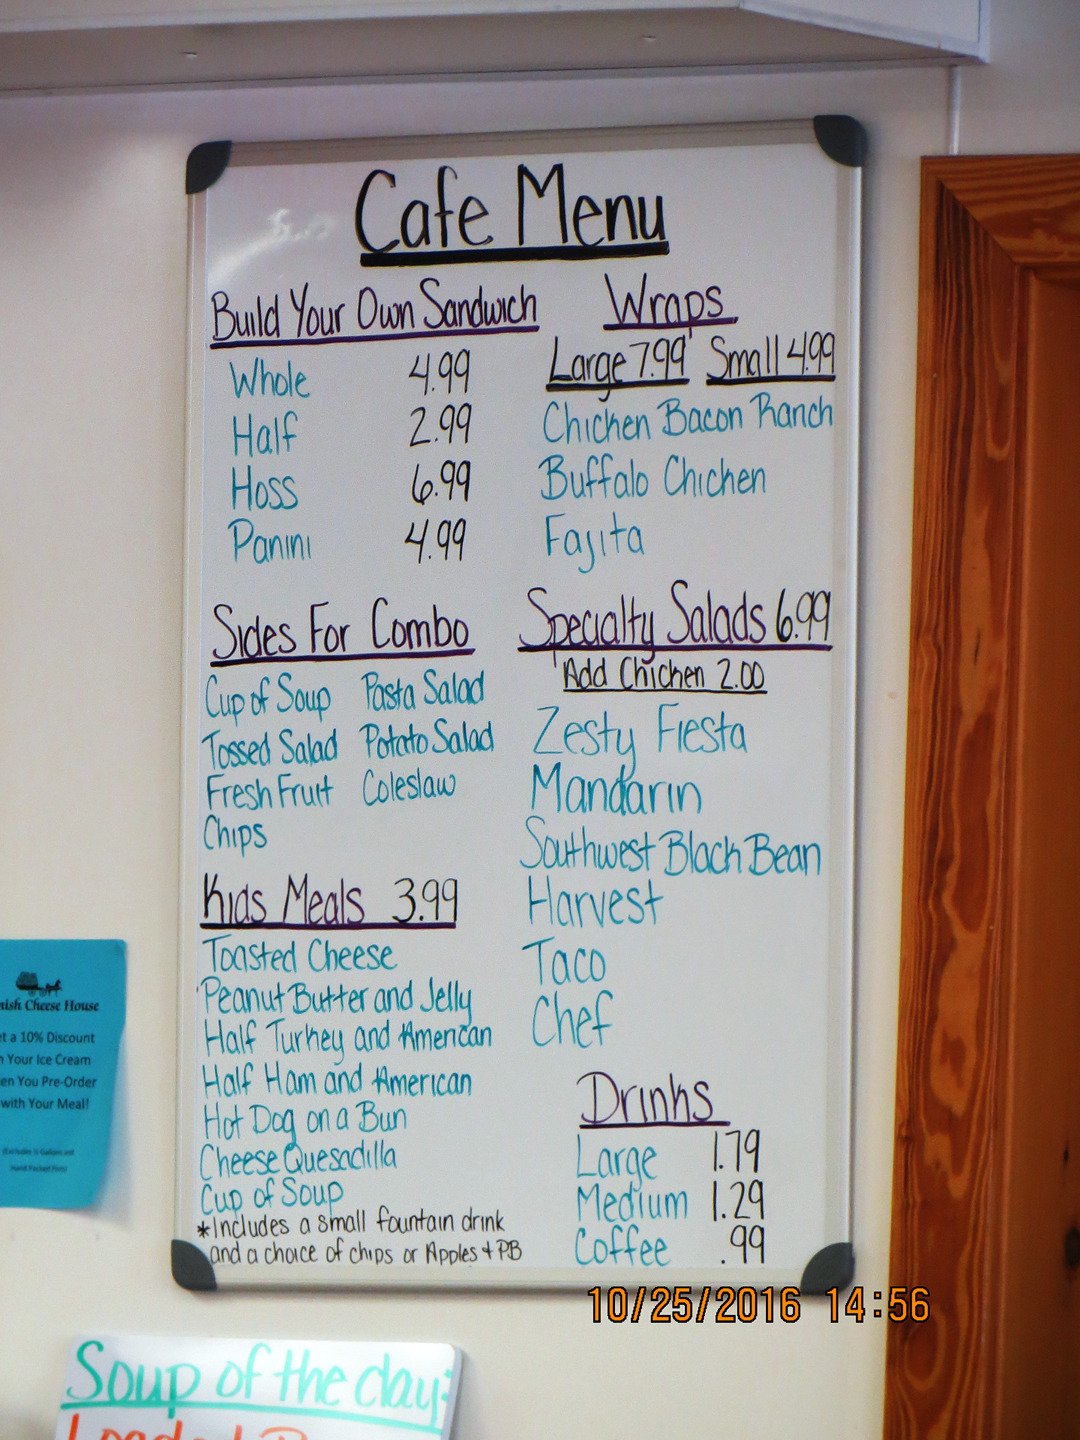 Cafe Menu
Build Your Own Sandwich
Whole 4.99
Half 2.99
Hoss 6.99
Panini 4.99
Sides For Combo
Cup of Soup Pasta Salad
Tossed Salad Potato Salad
Fresh Fruit Coleslaw
Chips
Kids Meals 3.99
Toasted Cheese
Peanut Butter and Jelly
Half Turkey and American
Half Ham and American
Hot Dog on a Bun
Cheese Quesadilla
Cup of Soup
*Includes a small fountain drink
and a choice of chips or Apples + PB
Wraps
Large 7.99 Small 4.99
Chicken Bacon Ranch
Buffalo Chicken
Fajita
Specialty Salads 6.99
Add Chicken 2.00
Zesty Fiesta
Mandarin
Southwest Black Bean
Harvest
Taco
Chef
Drinks
Large 1.79
Medium 1.29
Coffee .99
Cheese House
a 10% Discount
Your Ice Cream
You Pre-Order
with Your Meal!
Soup of the day:
10/25/2016 14:56